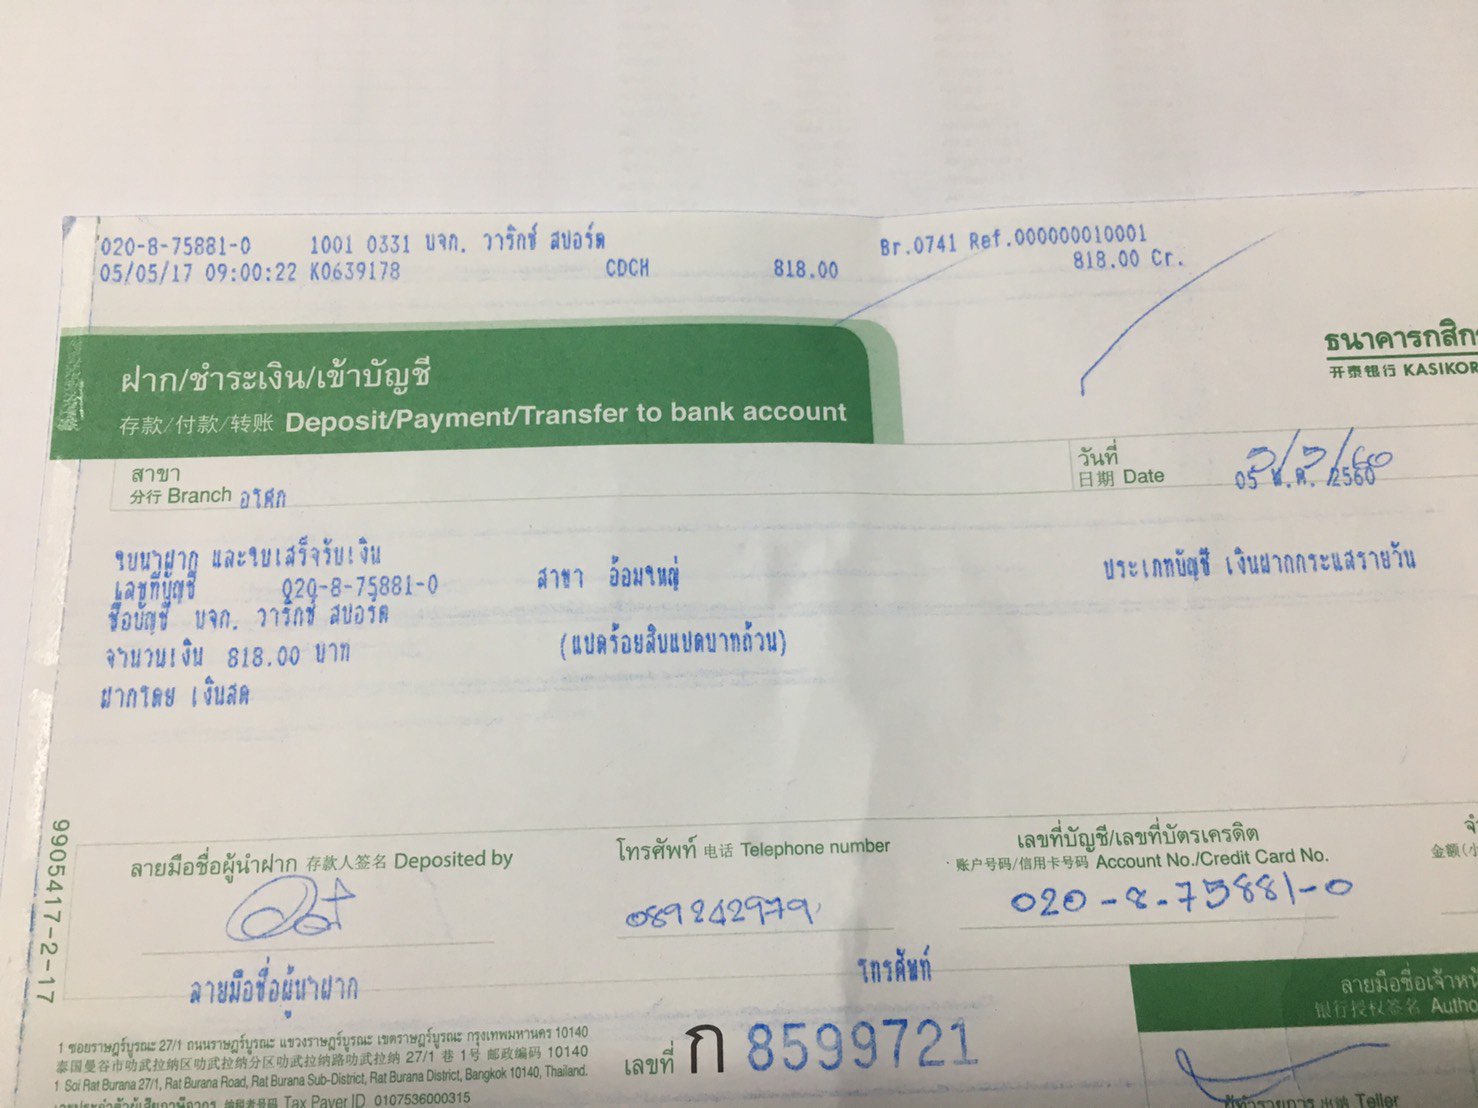 020-8-75881-0 1001 0331 บจก. วาริกซ์ สปอร์ต Br.0741 Ref.000000010001
05/05/17 09:00:22 K0639178 CDCH 818.00 818.00 Cr.
ธนาคารกสิก
开泰银行 KASIKOR
ฝาก/ชำระเงิน/เข้าบัญชี
存款/付款/转账 Deposit/Payment/Transfer to bank account
สาขา
分行 Branch อโศก
วันที่
日期 Date 05 พ.ค. 2560
ใบนำฝาก และใบเสร็จรับเงิน
เลขที่บัญชี 020-8-75881-0 สาขา อ้อมใหญ่ ประเภทบัญชี เงินฝากกระแสรายวัน
ชื่อบัญชี บจก. วาริกซ์ สปอร์ต
จำนวนเงิน 818.00 บาท (แปดร้อยสิบแปดบาทถ้วน)
ฝากโดย เงินสด
9905417-2-17
ลายมือชื่อผู้นำฝาก 存款人签名 Deposited by
โทรศัพท์ 电话 Telephone number
089242979
เลขที่บัญชี/เลขที่บัตรเครดิต
账户号码/信用卡号码 Account No./Credit Card No.
020-8-75881-0
金额(小
ลายมือชื่อผู้นำฝาก
โทรศัพท์
ลายมือชื่อเจ้าหน
银行授权签名 Autho
1 ซอยราษฎร์บูรณะ 27/1 ถนนราษฎร์บูรณะ แขวงราษฎร์บูรณะ เขตราษฎร์บูรณะ กรุงเทพมหานคร 10140
泰国曼谷市叻武拉纳区叻武拉纳分区叻武拉纳路叻武拉纳 27/1 巷 1号 邮政编码 10140
1 Soi Rat Burana 27/1, Rat Burana Road, Rat Burana Sub-District, Rat Burana District, Bangkok 10140, Thailand.
เลขประจำตัวผู้เสียภาษีอากร 纳税者号码 Tax Payer ID 0107536000315
เลขที่ ก 8599721
ผู้ทำรายการ 出纳 Teller